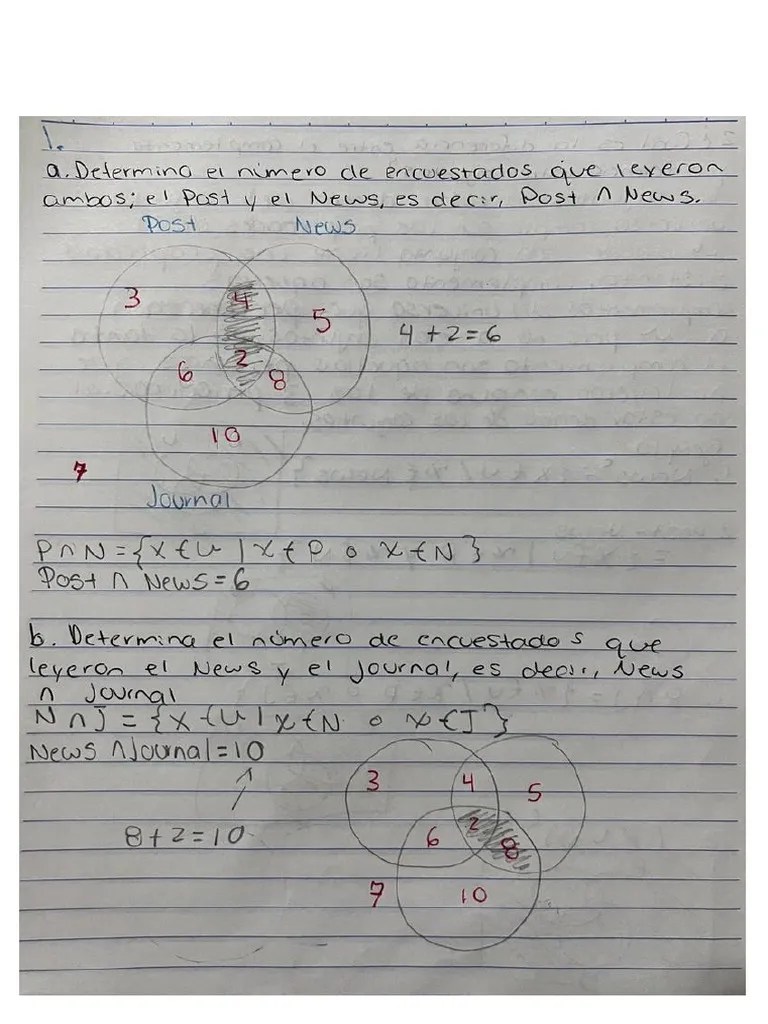 1.
a. Determina el número de encuestados que leyeron
ambos; el Post y el News, es decir, Post ∩ News.
Post News
3 4 5
4 + 2 = 6
2
6 8
10
7
Journal
P∩N = {x ∈ U | x ∈ P o x ∈ N}
Post ∩ News = 6
b. Determina el número de encuestados que
leyeron el News y el journal, es decir, News
∩ Journal
N∩J = {x ∈ U | x ∈ N o x ∈ J}
News ∩ Journal = 10
3 4 5
8 + 2 = 10
2
6 8
7 10